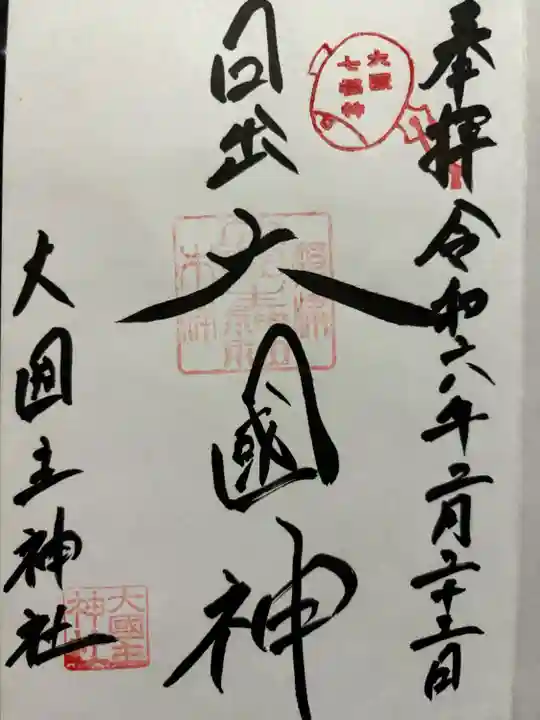 奉拝 令和六年二月二十三日
七福神
日出
大國神
大国主神社
大國主
神社